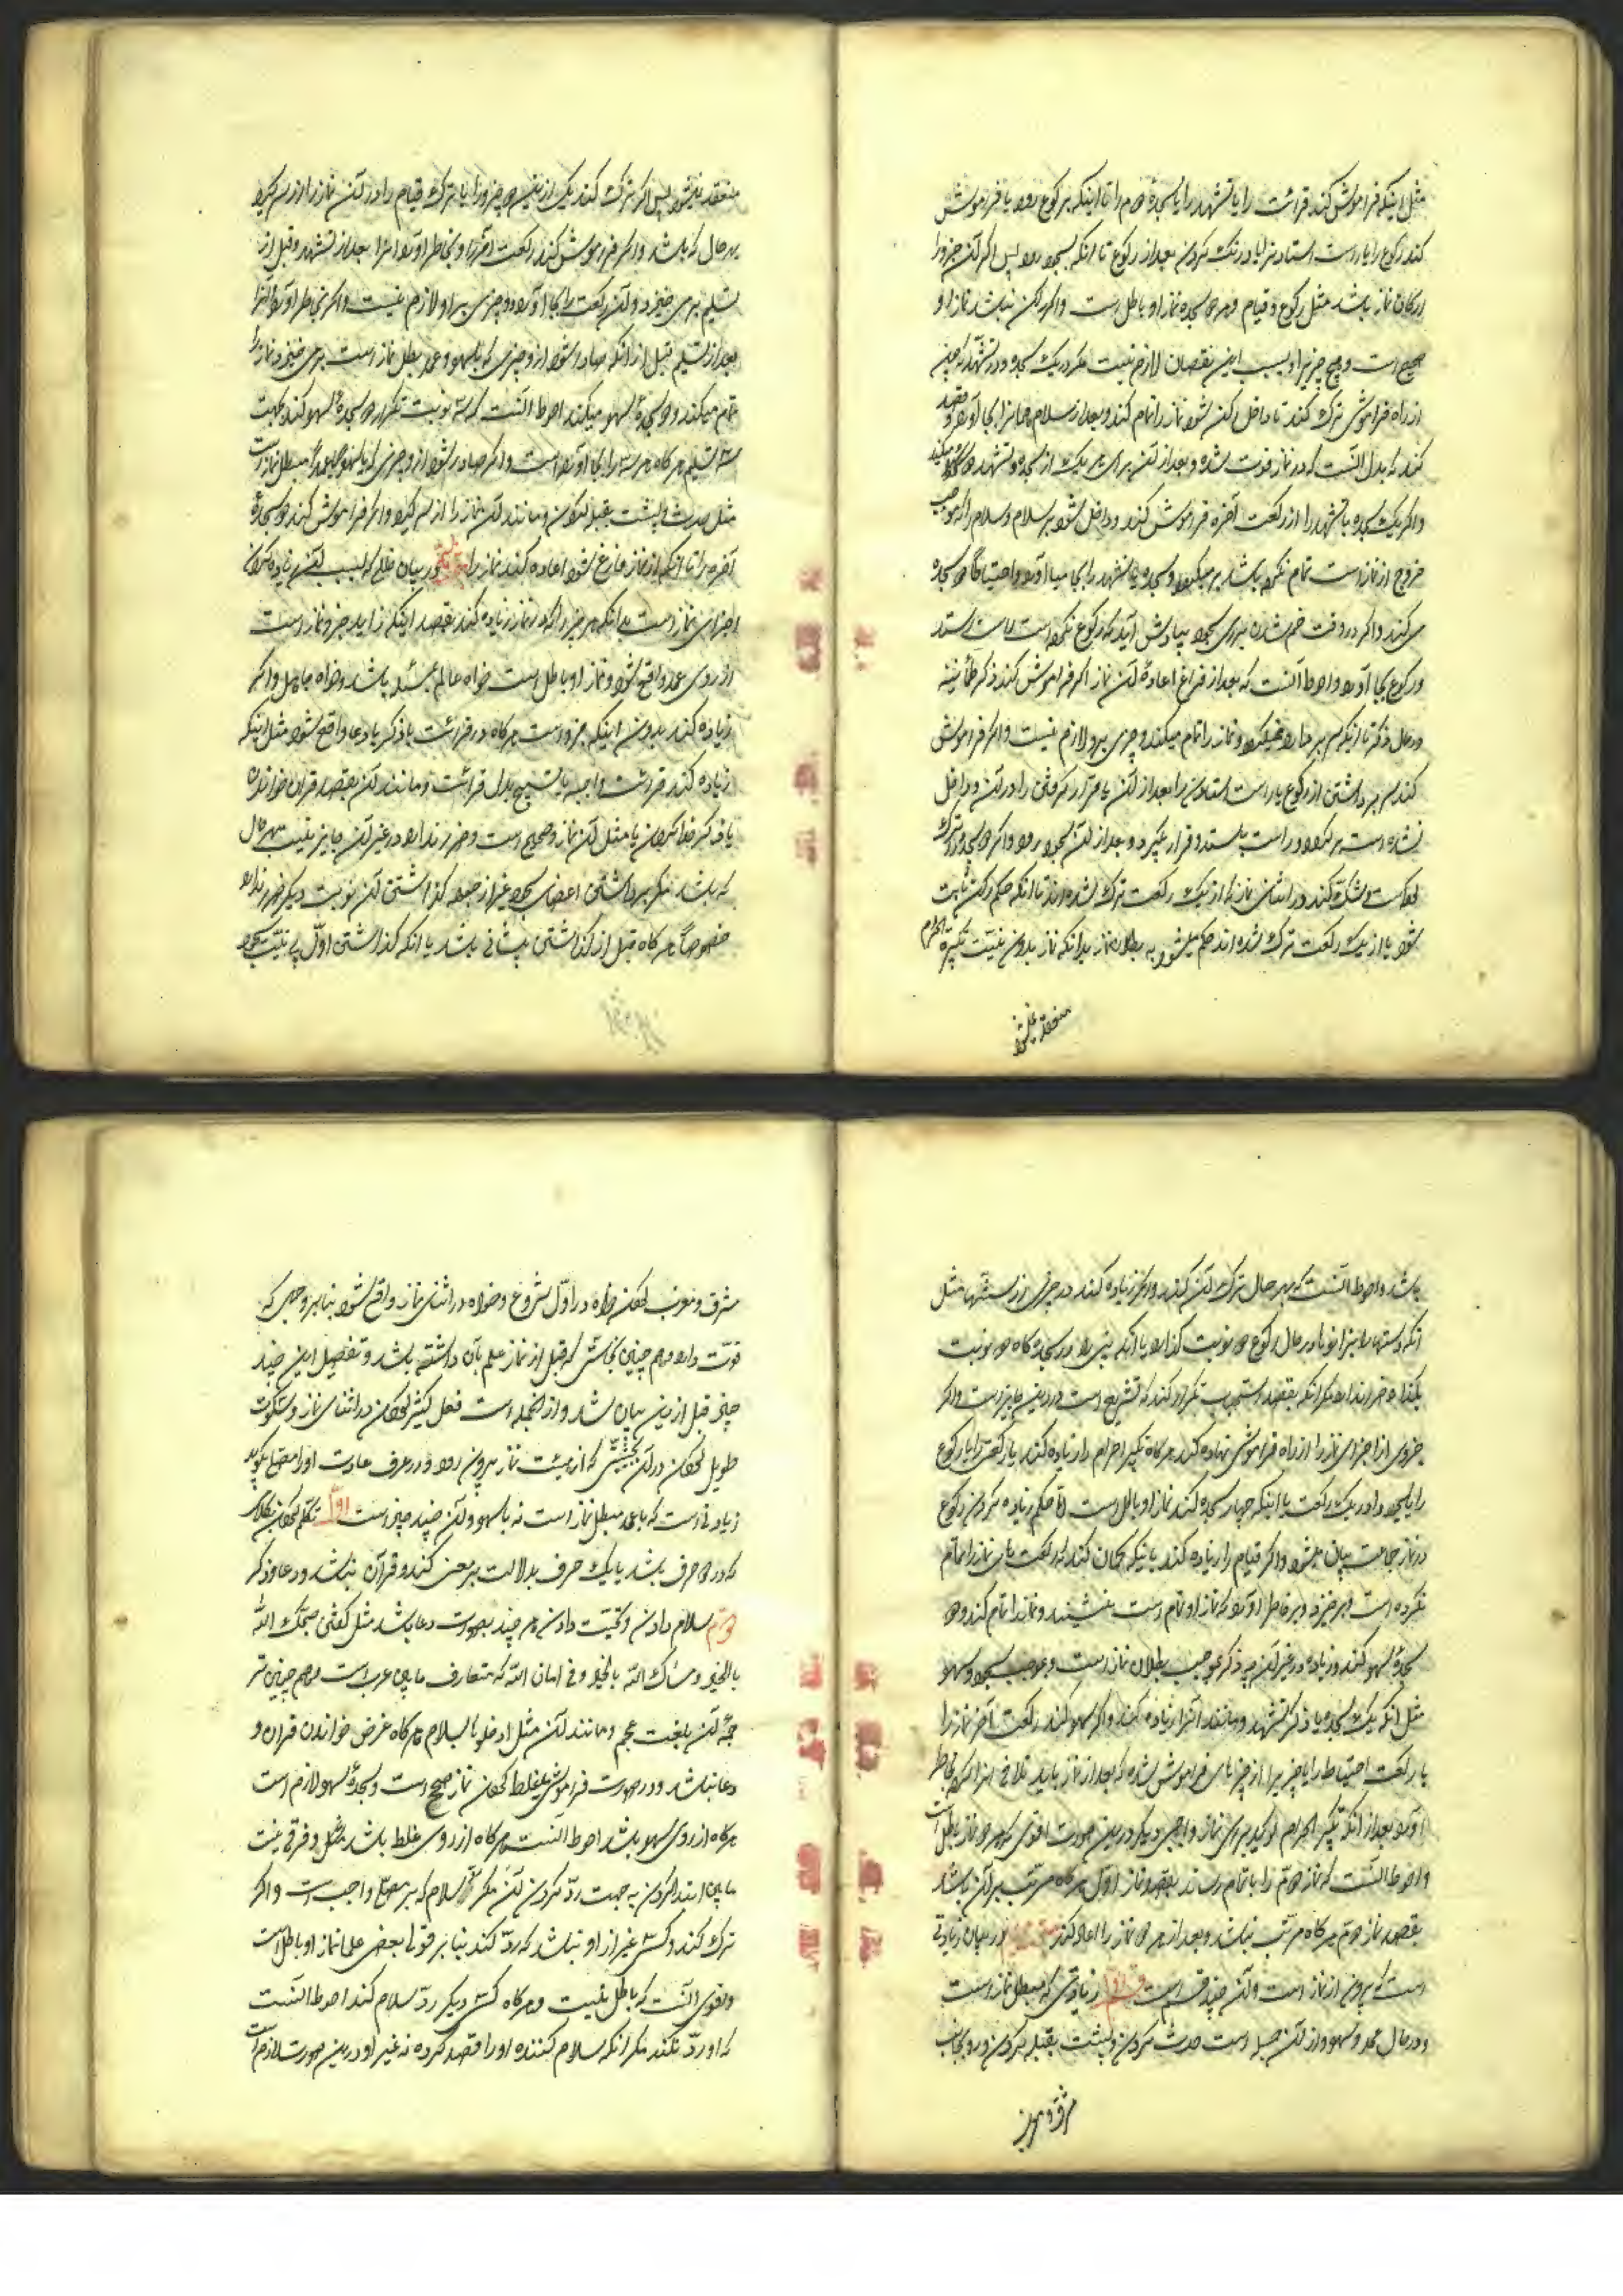 مثل اینکه فراموش کند قرائت را یا تشهد را یا سجده دوم را تا اینکه برکوع رود یا فراموش
کند رکوع را یا راست استادن را یا درنک کردن بعد از رکوع تا آنکه بسجود رود پس اکر آن جزو از
ارکان نماز باشد مثل رکوع و قیام و هر دو سجده نماز او باطل است و اکر رکن نباشد نماز او
صحیح است و هیچ چیز بر او بسبب این نقصان لازم نیست مکر در یک سجده و در تشهد که چون
از راه فراموشی ترک کند تا داخل رکن شود نماز را تمام کند و بعد از سلام همانرا بجا آورد و قصد
کند که بدل آنست که در نماز فوت شده و بعد از آن برای هر یک از سجده و تشهد دو سجده سهو میکند
و اکر یک سجده یا تشهد را از رکعت آخره فراموش کند و داخل شود بر سلام و سلام را که موجب
خروج از نماز است تمام نکرده باشد بر میکردد و سجده یا تشهد را بجا میآورد و احتیاطا دو سجده
می کند و اکر در وقت خم شدن برای سجود بیادش آید که رکوع نکرده است راست بایستد
و رکوع بجا آورد و احوط آنست که بعد از فراغ اعادهٔ آن نماز اکر فراموش کند ذکر طمأنینه
در حال ذکر تا آنکه سر بردارد نمیکردد و نماز را تمام میکند و چیزی برو لازم نیست و اکر فراموش
کند سر برداشتن از رکوع یا راست استادن را بعد از آن یا قرار گرفتن را در آن و داخل
نشده است برکردد و راست بایستد و قرار بگیرد و بعد از آن بسجود رود و اکر دو سجده را ترک
کرده است و شک کند در اثنای نماز که از یک رکعت ترک شده اند تا آنکه حکم رکن ثابت
شود یا از یک رکعت ترک شده اند حکم میشود به بطلان نماز بدانکه نماز بدون نیت و تکبیرة احرام
منعقد نمیشود
منعقد نمیشود پس اکر ترک کند یکی از این دو چیز را یا ترک قیام را در آن نماز را از سر کیرد
بهر حال که باشد و اکر فراموش کند رکعت آخر را و بخاطر آورد آنرا بعد از تشهد و قبل از
تسلیم برمی خیزد و آن رکعت را بجا آورد و چیزی بر او لازم نیست و اکر بخاطر آورد آنرا
بعد از تسلیم قبل از آنکه صادر شود از او چیزی که بسهو و عمد مبطل نماز است برمی خیزد و نماز را
تمام میکند و دو سجدهٔ سهو میکند احوط آنست که سه نوبت تکرار دو سجدهٔ سهو کند بجهت
سه تسلیم هر کاه هر سه را بجا آورده است و اکر صادر شود از او چیزی که بسهو و عمد مبطل نماز است
مثل حدث و پشت بقبله کردن و مانند آن نماز را از سر کیرد و اکر فراموش کند دو سجدهٔ
آخره را تا آنکه از نماز فارغ شود اعاده کند نماز را در بیان خللی که بسبب آن زیاده کردن
اجزای نماز است بدانکه هر جزو را که در نماز زیاده کند بقصد اینکه زاید جزو نماز است
از روی عمد واقع شود و نماز او باطل است خواه عالم بمسئله باشد و خواه جاهل و اکر
زیاده کند بدون اینکه جزو است هر کاه در قرائت یا ذکر یا دعا واقع شود مثل اینکه
زیاده کند قرائت واجبه یا تسبیح بدل قرائت و مانند آن بقصد قرآن خواندن
یا ذکر خدا کردن یا مثل آن نماز او صحیح است و ضرر ندارد و در غیر آن جایز نیست بهر حال
که باشد مکر برداشتن اعضای سجود غیر از جبهه و گذاشتن آن نوبت دیکر ضرر ندارد
خصوصاً هر کاه قبل از گذاشتن پیشانی باشد یا آنکه گذاشتن اوّل بی نیّت سجود
باشد و احوط آنست که بهر حال ترک آن کند و اکر زیاده کند در چیزی از سنتها مثل
آنکه دستها را بزانوها در حال رکوع دو نوبت گذارد یا آنکه بینی را در سجده کاه دو نوبت
بگذارد ضرر ندارد مکر آنکه بقصد استحباب تکرار کند که تشریع است و در دین جایز نیست و اکر
جزوی از اجزای نماز را از راه فراموشی زیاده کند هر کاه تکبیر احرام را زیاده کند یا رکعتی را یا رکوع
را یا سجود را در یک رکعت یا اینکه چهار سجده کند نماز او باطل است امّا حکم زیاده کردن رکوع
در نماز جماعت بیان میشود و اکر قیام را زیاده کند باینکه کمان کند که رکعت های نماز را تمام
نکرده است و برخیزد و بخاطر آورد که نماز او تمام است بنشیند و نماز را تمام کند و دو
سجدهٔ سهو کند و زیاده در غیر آن چه ذکر شد موجب بطلان نماز نیست و موجب سجود سهو
مثل آنکه یک سجده یا ذکر تشهد و مانند آنرا زیاده کند و اکر سهو کند رکعت آخر نماز را
یا رکعت احتیاط را یا چیزیرا از چیزهای فراموش شده که بعد از نماز باید تلافی آنرا کرد و بخاطر
آورد بعد از آنکه تکبیر احرام گوید برای نماز واجبی دیکر در این صورت اقوی آنکه هر دو نماز باطل است
و احوط آنست که نماز دوّم را باتمام رساند بقصد نماز اوّل هر کاه مرتّب بر آن باشد
بقصد نماز دوّم هر کاه مرتّب نباشد و بعد از آن هر دو نماز را اعاده کند در بیان زیادتی
است که بیرون از نماز است و آن چند قسم است اوّل زیادتی که مبطل نماز است
در حال عمد و سهو و از آن جمله است حدث کردن و پشت بقبله کردن و رو بجانب
مشرق و مغرب
مشرق و مغرب کردن خواه در اوّل شروع و خواه در اثنای نماز واقع شود بنا بر وجهی که
قوّت دارد و هم چنین نجاستی که قبل از نماز علم بآن داشته باشد و تفصیل این چند
چیز قبل از این بیان شد و از آنجمله است فعل کثیر کردن در اثنای نماز و سکوت
طویل کردن در آن بحیثیتی که از هیئت نماز بیرون رود و در عرف عادت او را مصلّی نکویند
زیادتی است که بعمد مبطل نماز است نه بسهو و آن چند چیز است اوّل تکلّم کردن بکلامی
که در او دو حرف باشد یا یک حرف بدلالت بر معنی کند و قرآن نباشد و دعا و ذکر
دوّم سلام دادن و تحیّت دادن هر چند بصورت دعا باشد مثل گفتن صبّحک اللّه
بالخیر و مسّاک اللّه بالخیر و فی امان اللّه که متعارف مابین عرب است و هم چنین تر
جمهٔ آن بلغت عجم و مانند آن مثل ادخلوها بسلام هر کاه غرض خواندن قرآن و
دعا نباشد و در صورت فراموشی یا غلط کردن نماز صحیح است و سجدهٔ سهو لازم است
هر کاه از روی سهو باشد احوط آنست هر کاه از روی غلط باشد و فرقی نیست
مابین ابتدا کردن به جهت ردّ کردن آن مکر سلام که بر مصلّی واجب است و اکر
ترک کند و کسی غیر از او نباشد که ردّ کند بنا بر قول بعضی علما نماز او باطل است
و اقوی آنست که باطل نیست و هر کاه کسی دیکر ردّ سلام کند احوط آنست
که او ردّ نکند مکر آنکه سلام کننده او را قصد کرده نه غیر او در این صورت لازم است